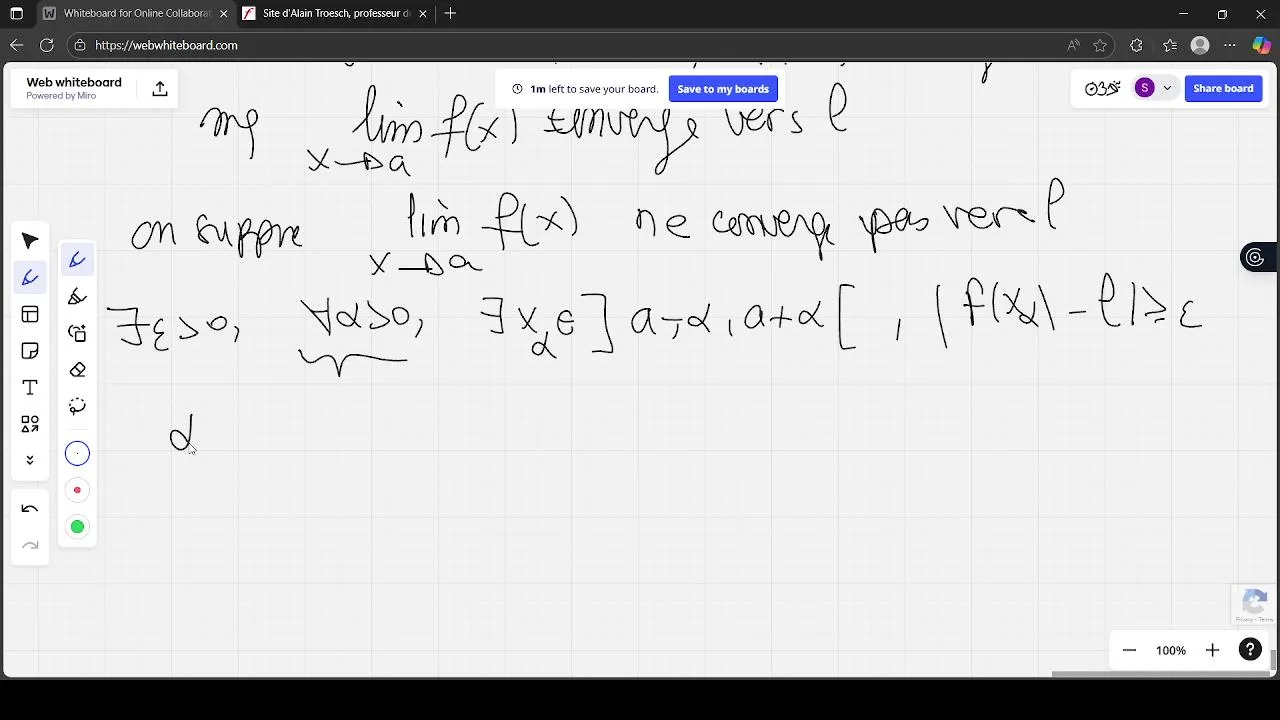 Whiteboard for Online Collaborat
Site d'Alain Troesch, professeur de
https://webwhiteboard.com
Web whiteboard
Powered by Miro
1m left to save your board.
Save to my boards
S
Share board
mq lim f(x) converge vers l
x→a
on suppose lim f(x) ne converge pas vers l
x→a
∃ε>0, ∀α>0, ∃xα∈]a-α, a+α[, |f(xα)-l|≥ε
α
T
Privacy - Terms
100%
?